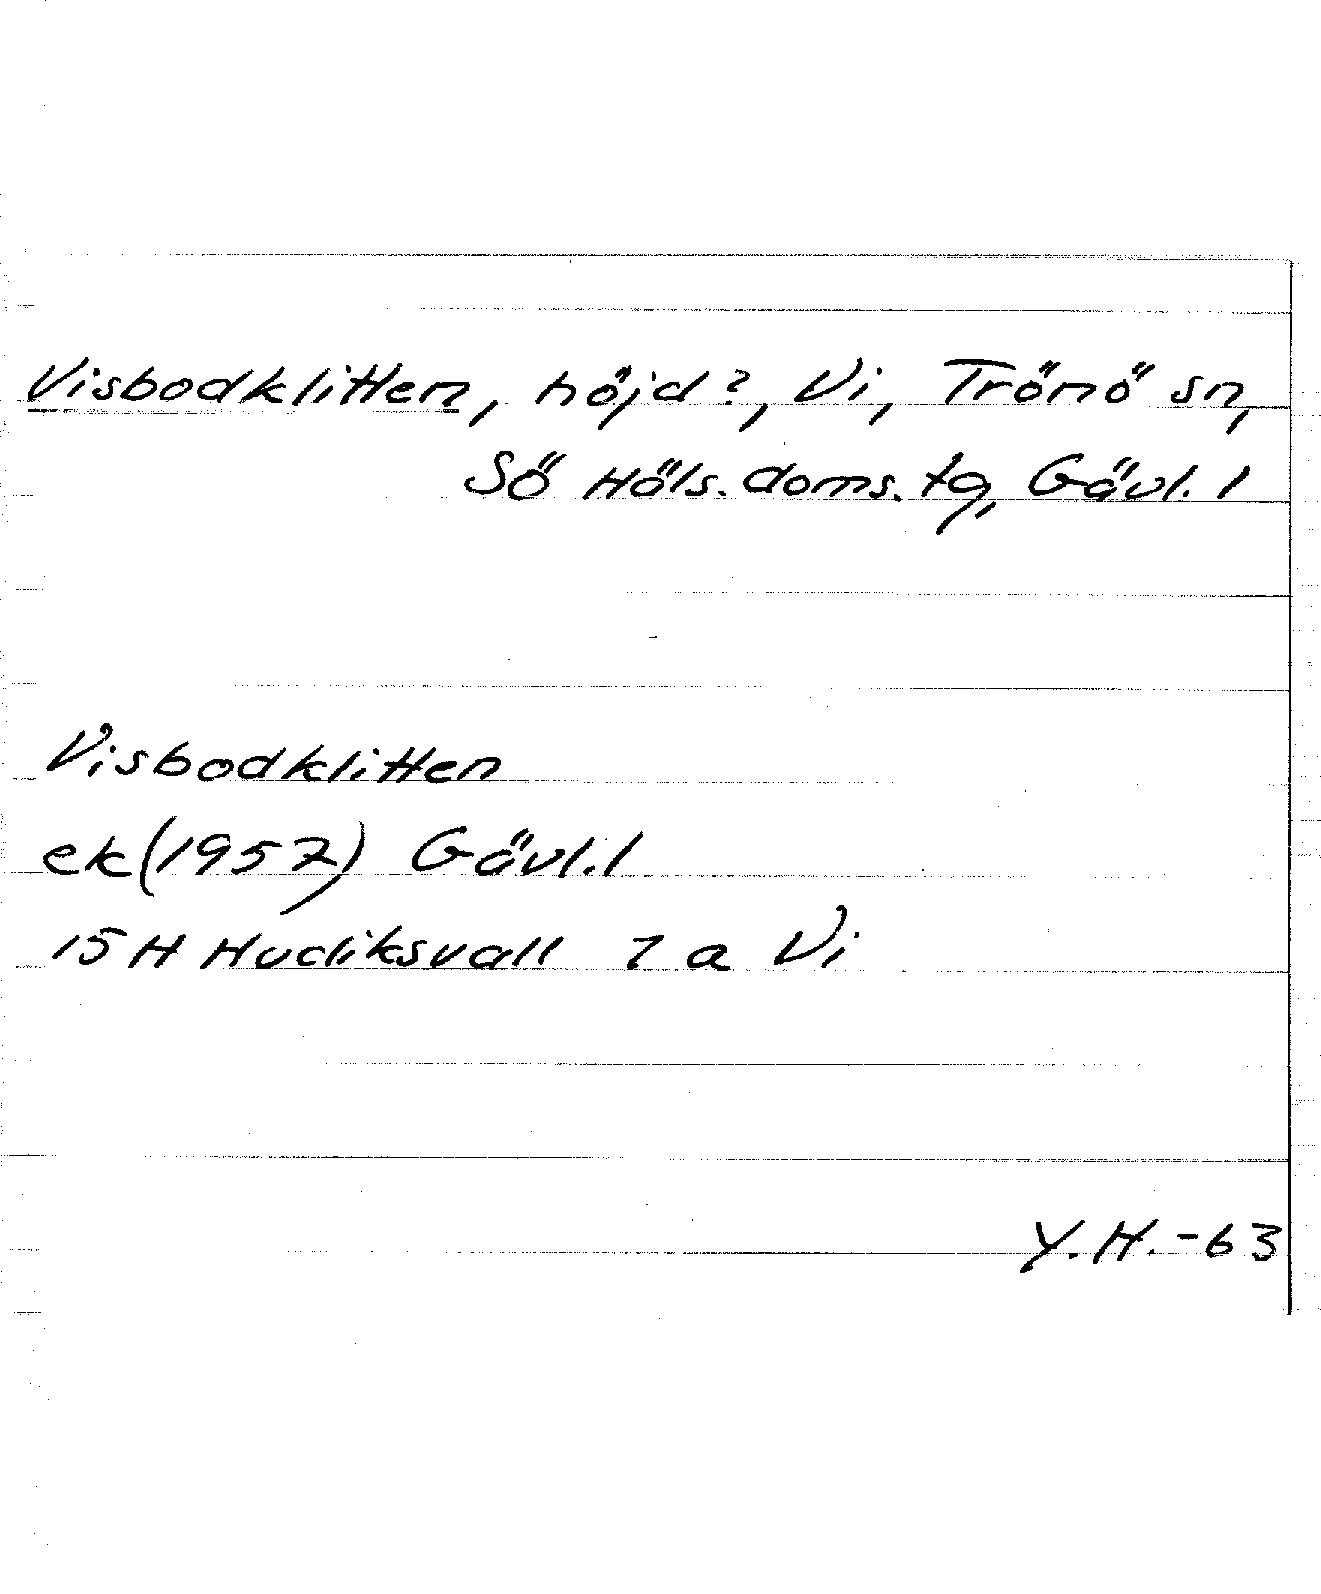 Visbodklitten, höjd?, Vi, Trönö sn,
Sö Häls. doms. tg, Gävl. l
Visbodklitten
ek (1957) Gävl. l
15 H Hudiksvall 7 a Vi
Y. H. -63